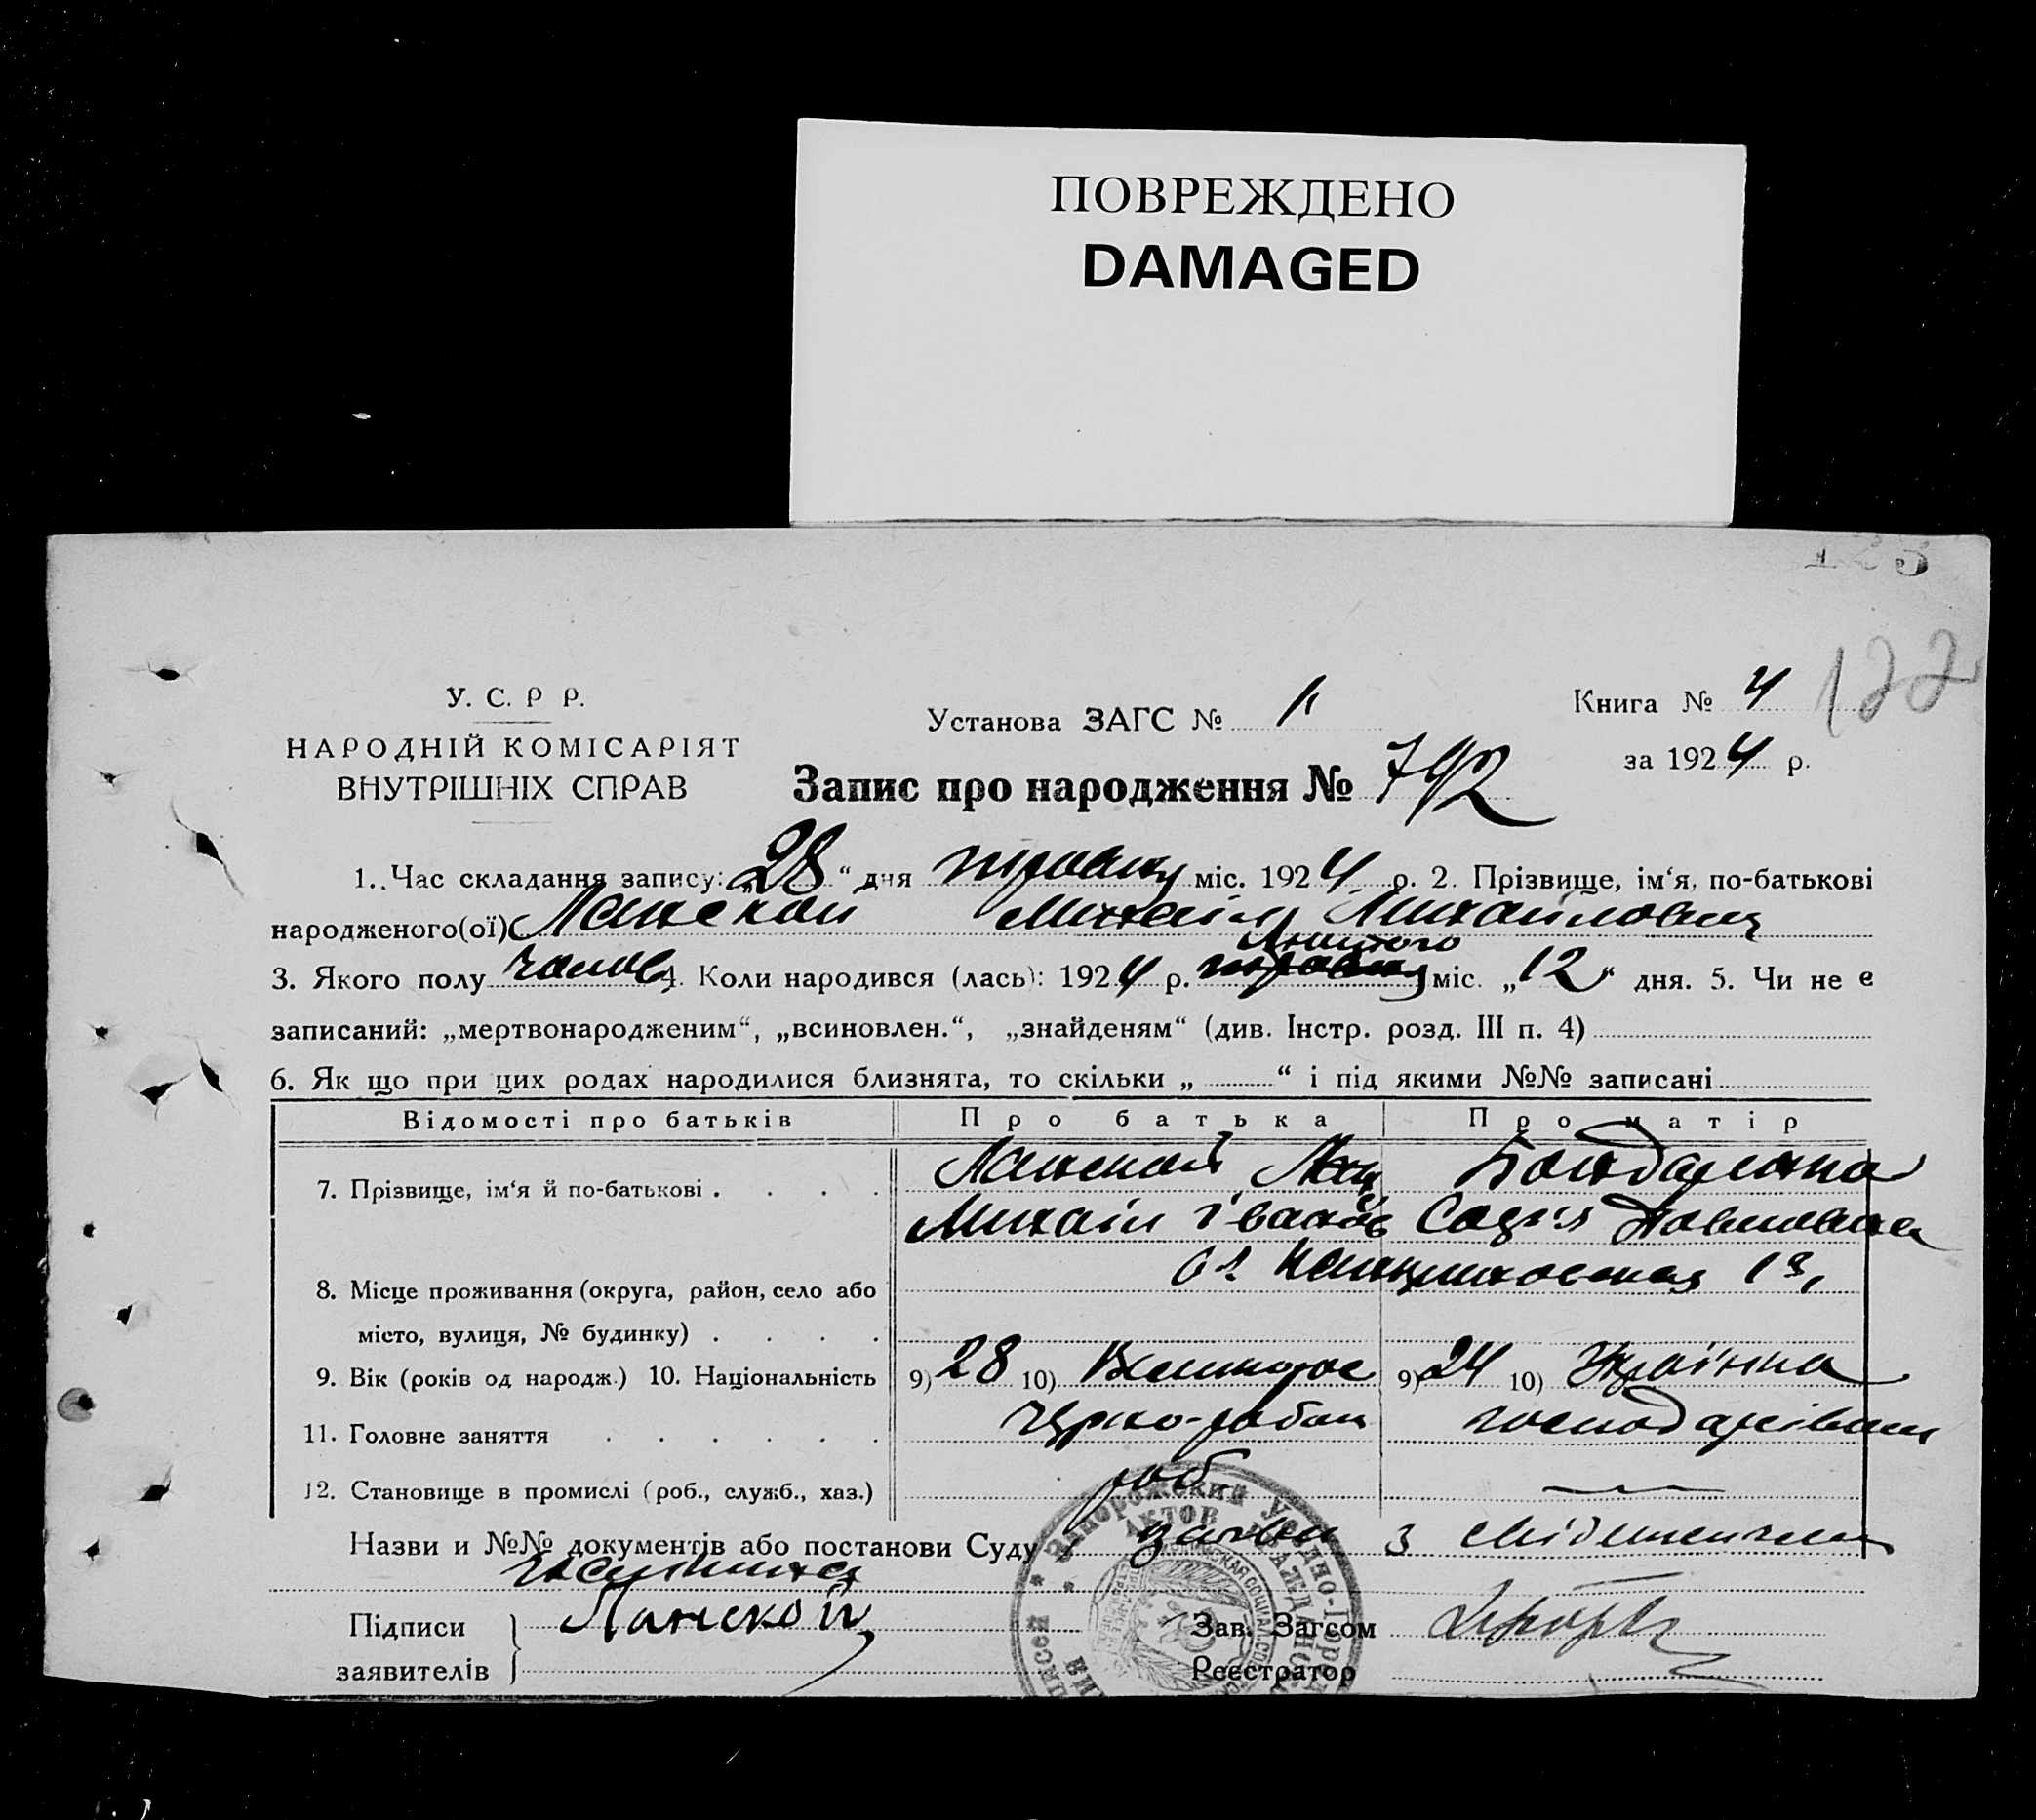 ПОВРЕЖДЕНО
DAMAGED
123
122
У. С. Р Р.
НАРОДНІЙ КОМІСАРІЯТ
ВНУТРІШНІХ СПРАВ
Установа ЗАГС №
Книга № 4
за 1924 р.
Запис про народження № 792
1. Час складання запису: „28“ дня травня міс. 1924 р. 2. Прізвище, ім‘я, по-батькові
народженого(ої) Ланской Михаіл Михайлович
Лютого
3. Якого полу чолов 4. Коли народився (лась): 1924 р. травня міс. „12“ дня. 5. Чи не є
записаний: „мертвонародженим“, „всиновлен.“, „знайденям“ (див. Інстр. розд. III п. 4)
6. Як що при цих родах народилися близнята, то скільки „ “ і під якими №№ записані
Відомості про батьків Про батька Про матір
7. Прізвище, ім‘я й по-батькові . . . . Ланской Бондаренко
Михаіл Іванов Софія Павловна
8. Місце проживання (округа, район, село або
місто, вулиця, № будинку) . . . .
9. Вік (років од народж.) 10. Національність 9) 28 10) Великорос 9) 24 10) Українка
11. Головне заняття . . . . . . Чорно-робоч
12. Становище в промислі (роб., служб., хаз.) роб.
Назви и №№ документів або постанови Суду заява з
Підписи
заявителів
Ланской
Зав. Загсом
Реєстратор